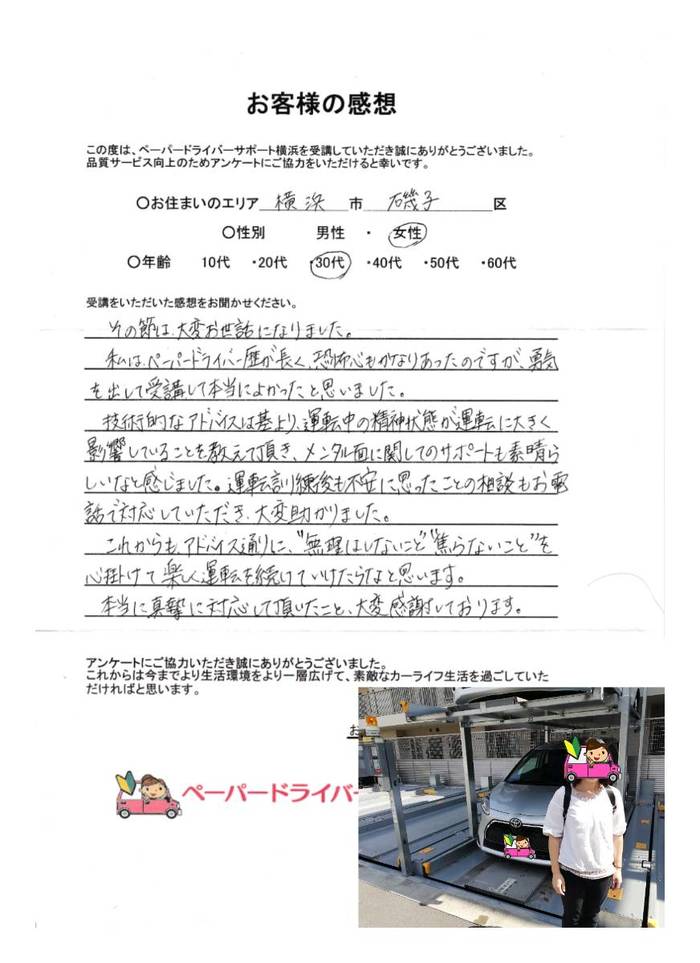 お客様の感想
この度は、ペーパードライバーサポート横浜を受講していただき誠にありがとうございました。
品質サービス向上のためアンケートにご協力をいただけると幸いです。
〇お住まいのエリア 横浜 市 磯子 区
〇性別 男性 ・ 女性
〇年齢 10代 ・20代 ・30代 ・40代 ・50代 ・60代
受講をいただいた感想をお聞かせください。
その節は、大変お世話になりました。
私は、ペーパードライバー歴が長く、恐怖心もかなりあったのですが、勇気
を出して受講して本当によかったと思いました。
技術的なアドバイスは基より、運転中の精神状態が運転に大きく
影響していることを教えて頂き、メンタル面に関してのサポートも素晴ら
しいなと感じました。運転訓練後も不安に思ったことの相談もお電
話で対応していただき、大変助かりました。
これからも、アドバイス通りに、"無理はしないこと""焦らないこと"を
心掛けて楽しく運転を続けていけたらなと思います。
本当に真摯に対応して頂いたこと、大変感謝しております。
アンケートにご協力いただき誠にありがとうございました。
これからは今までより生活環境をより一層広げて、素敵なカーライフ生活を過ごしていた
だければと思います。
お
ペーパードライバー